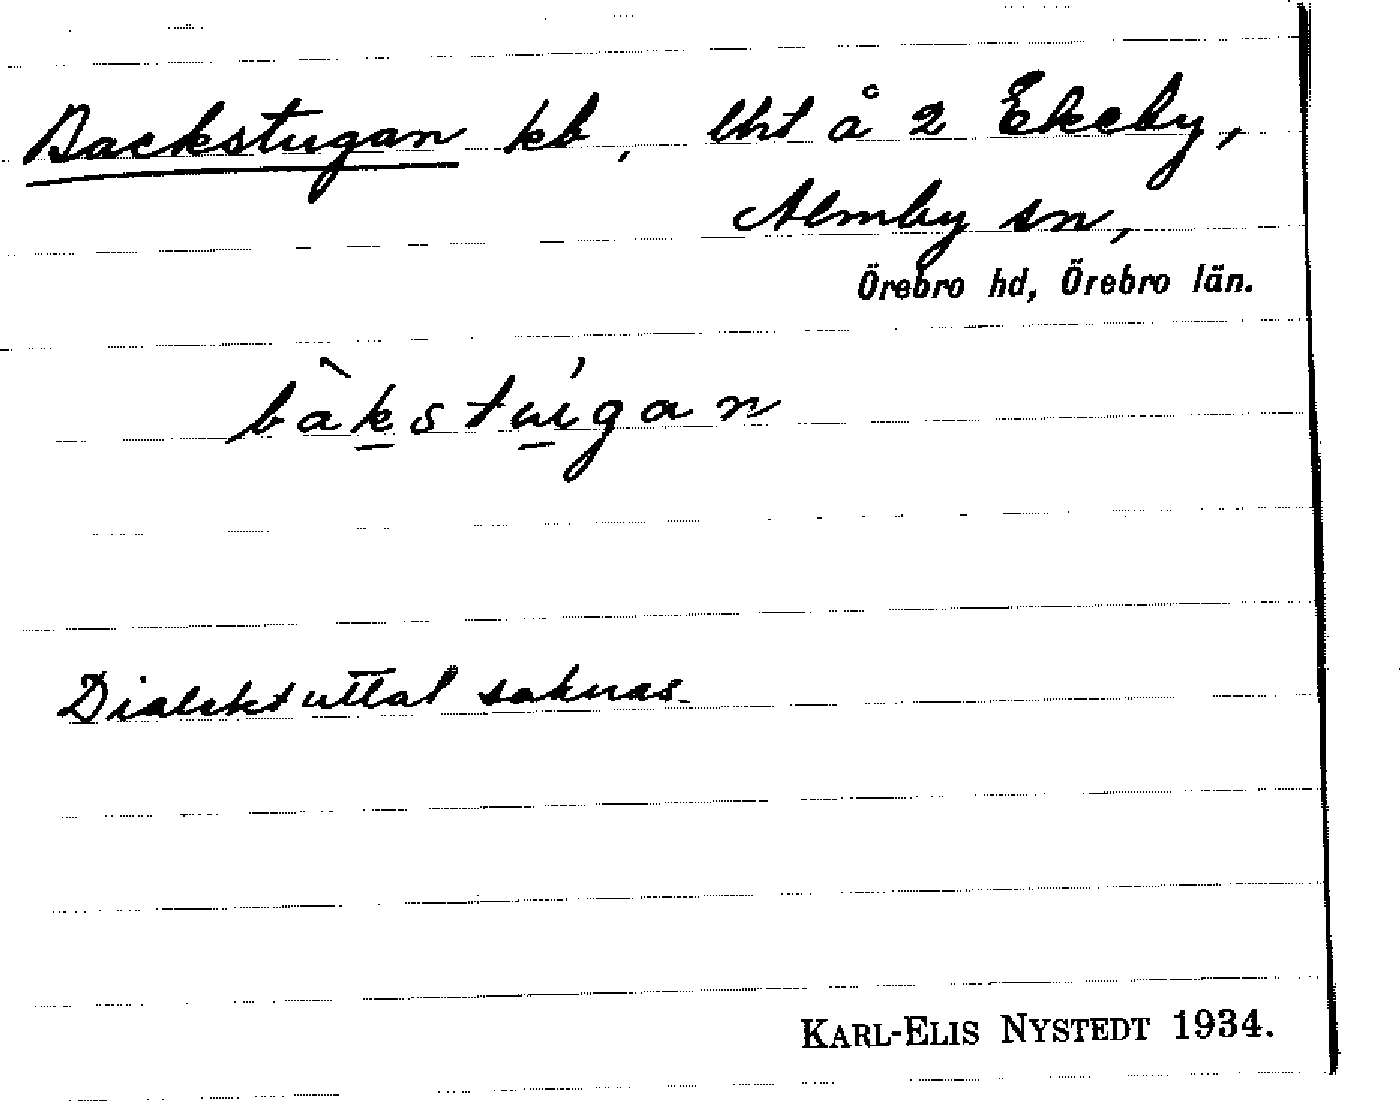 Backstugan kb, lht å 2 Ekeby,
Almby sn,
Örebro hd, Örebro län.
bàkstúgan
Dialektuttal saknas.
KARL-ELIS NYSTEDT 1934.